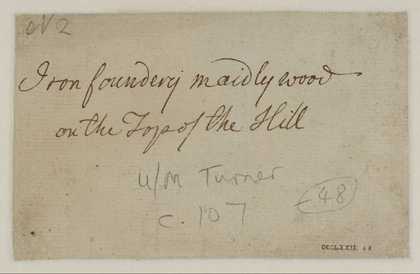 Iron foundery maidly wood
on the Top of the Hill
u/m Turner
48
c. 107